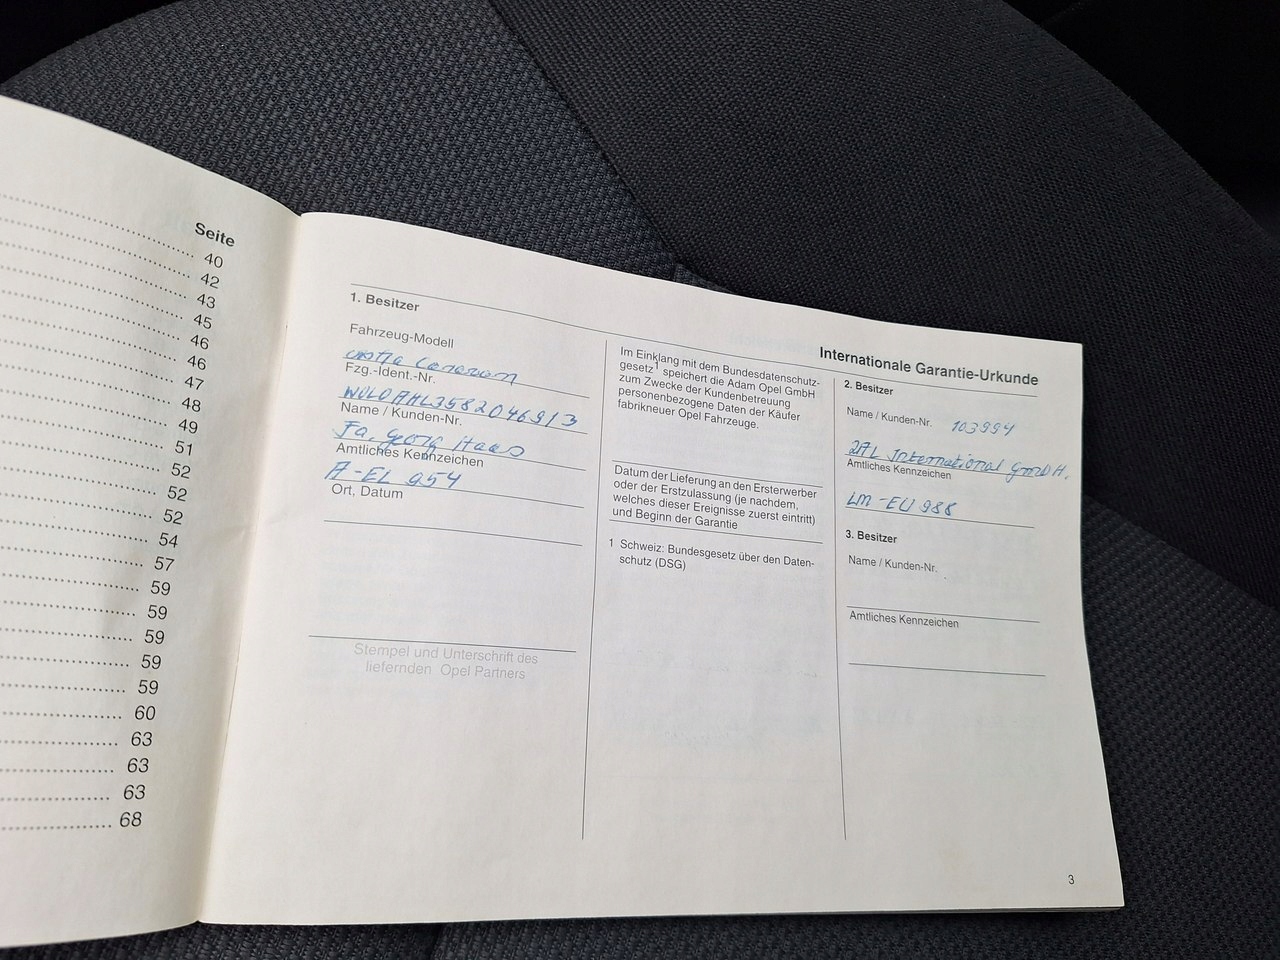 Seite
40
42
43
45
46
46
47
48
49
51
52
52
52
54
57
59
59
59
59
59
60
63
63
63
68
Internationale Garantie-Urkunde
1. Besitzer
Fahrzeug-Modell
Fzg.-Ident.-Nr.
W0L0AHL3582046913
Name / Kunden-Nr.
Fa. Georg Haas
Amtliches Kennzeichen
A-EL 954
Ort, Datum
Stempel und Unterschrift des
liefernden Opel Partners
Im Einklang mit dem Bundesdatenschutz-
gesetz¹ speichert die Adam Opel GmbH
zum Zwecke der Kundenbetreuung
personenbezogene Daten der Käufer
fabrikneuer Opel Fahrzeuge.
Datum der Lieferung an den Ersterwerber
oder der Erstzulassung (je nachdem,
welches dieser Ereignisse zuerst eintritt)
und Beginn der Garantie
1 Schweiz: Bundesgesetz über den Daten-
schutz (DSG)
2. Besitzer
Name / Kunden-Nr. 103994
International GmbH.
Amtliches Kennzeichen
LM-EU 988
3. Besitzer
Name / Kunden-Nr.
Amtliches Kennzeichen
3